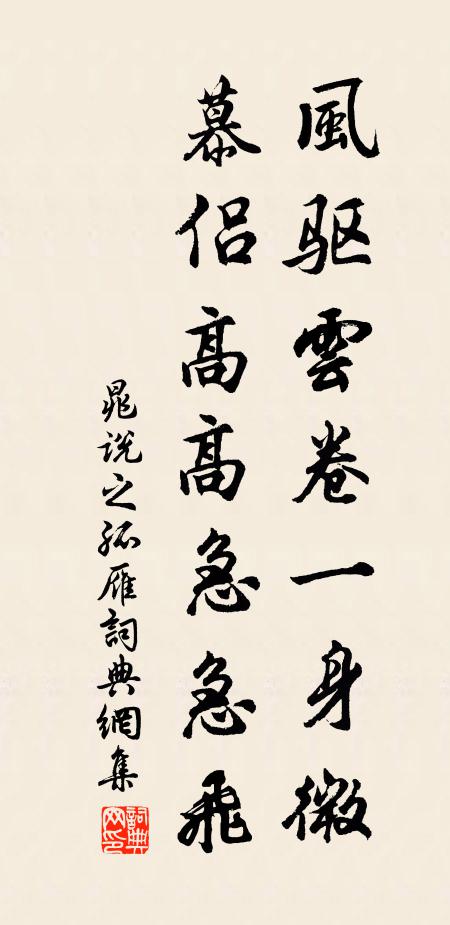 風驱雲卷一身微
慕侣高高急急飛
晁说之孤雁詞典網集
詞典网印